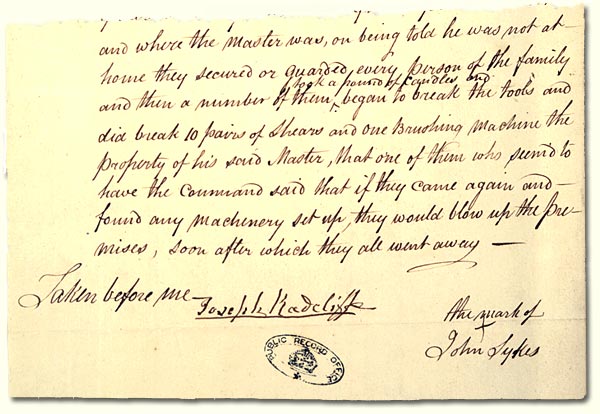 and where the Master was, on being told he was not at
home they secured or guarded every person of the family
took a pound of candles and
and then a number of them began to break the tools and
did break 10 pairs of Shears and one Brushing Machine the
property of his said Master, that one of them who seem'd to
have the Command said that if they came again and
found any Machinery set up, they would blow up the pre-
mises, soon after which they all went away —
Taken before me
Joseph Radcliffe
the mark of
John Sykes
PUBLIC RECORD OFFICE